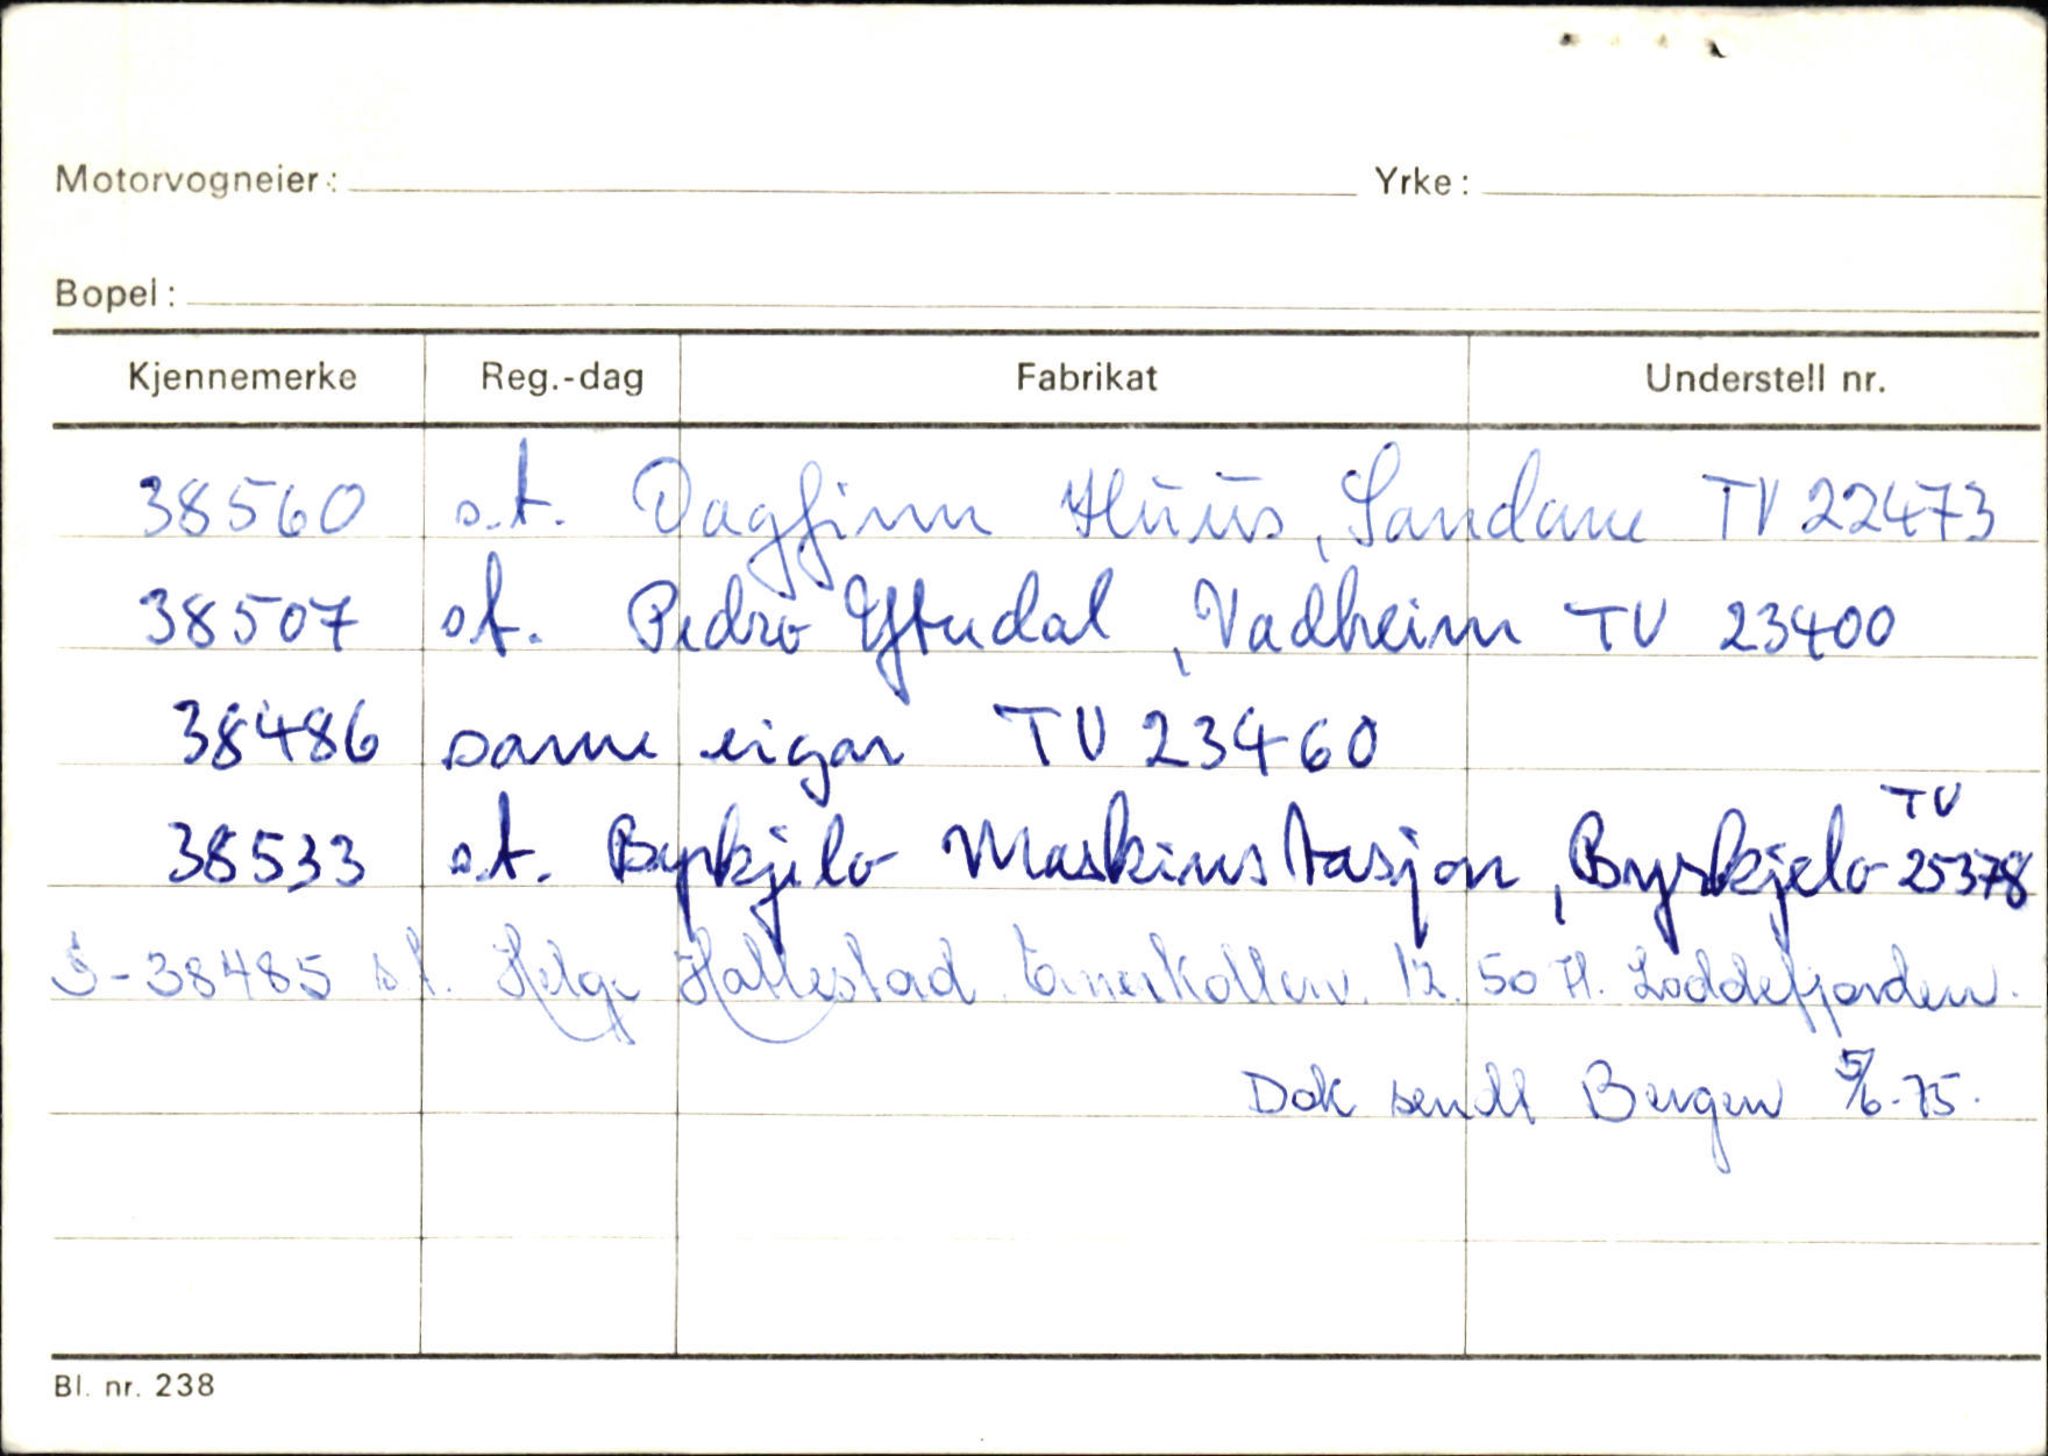 Motorvogneier: Yrke:
Bopel:
Kjennemerke Reg.-dag Fabrikat Understell nr.
38560 s.t. Dagfinn Huus, Sandane TV 22473
38507 s.t. Pedro Ytredal, Vadheim TV 23400
38486 same eigar TV 23460
38533 s.t. Byrkjelo Maskinstasjon, Byrkjelo TV 25378
S-38485 s.t. Helge Hallestad 12. 50 H. Loddefjorden.
Dok sendt Bergen 5/6-75.
Bl. nr. 238